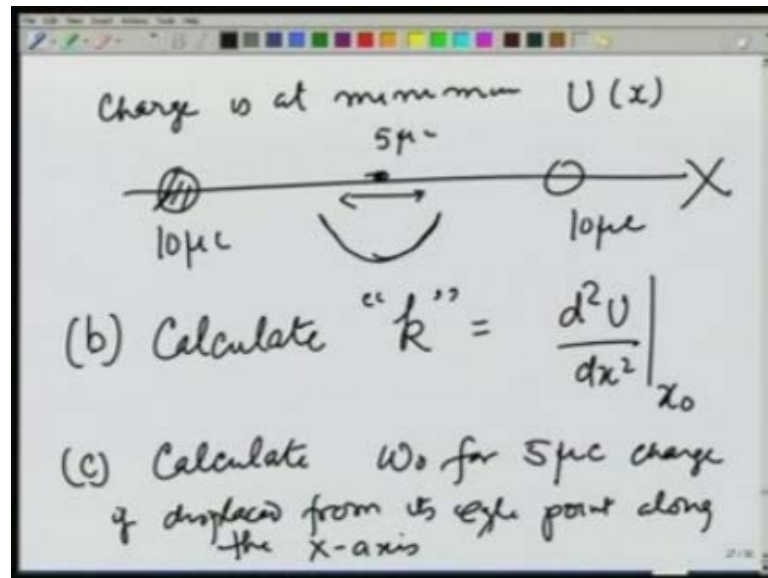 Charge is at minimum U(x)
5μc
X
10μc
10μc
(b) Calculate "k" = d²U/dx² |x₀
(c) Calculate ω₀ for 5μc charge
if displaced from its eqlm point along
the x-axis